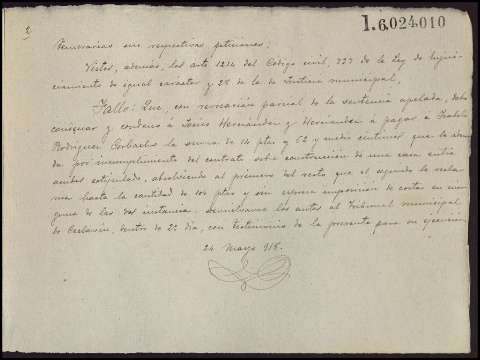 2)
1.6.024.010
temerarias sus respectivas peticiones;
Vistos, además, los arts 1214 del Código civil, 727 de la Ley de Enjui-
ciamiento de igual carácter y 28 de la de Justicia municipal,
Fallo: Que, con revocación parcial de la sentencia apelada, debo
condenar y condeno á Jesús Hernández y Hernández á pagar á
Rodríguez Corbacho la suma de 14 ptas y 62 y medio céntimos que le adeu-
da por incumplimiento del contrato sobre construcción de una casa entre
ambos estipulado, absolviendo al primero del resto que el segundo le recla-
ma hasta la cantidad de 104 ptas y sin expresa imposición de costas en nin-
guna de las dos instancias. Devuélvanse los autos al Tribunal municipal
de Ceclavín, dentro de 2º día, con testimonio de la presente para su ejecución.
24 Mayo 918.